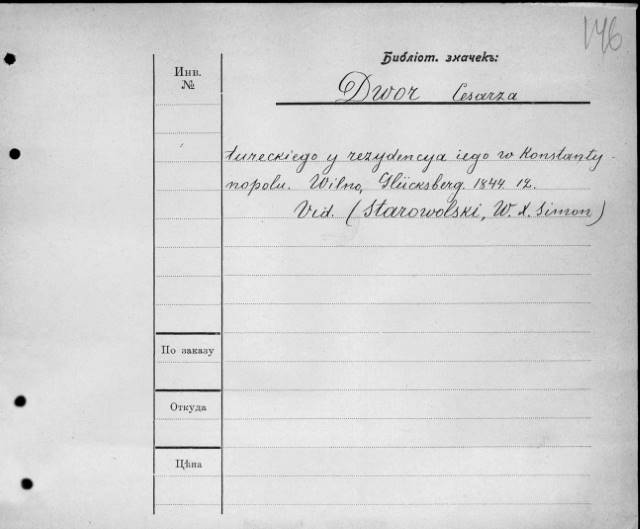 146
Библіот. значекъ:
Инв.
№
Dwor Cesarza
tureckiego y rezydencya iego w Konstanty-
nopolu. Wilno, Glücksberg. 1844 12.
Vid. (Starowolski, W. X. Simon)
По заказу
Откуда
Цѣна